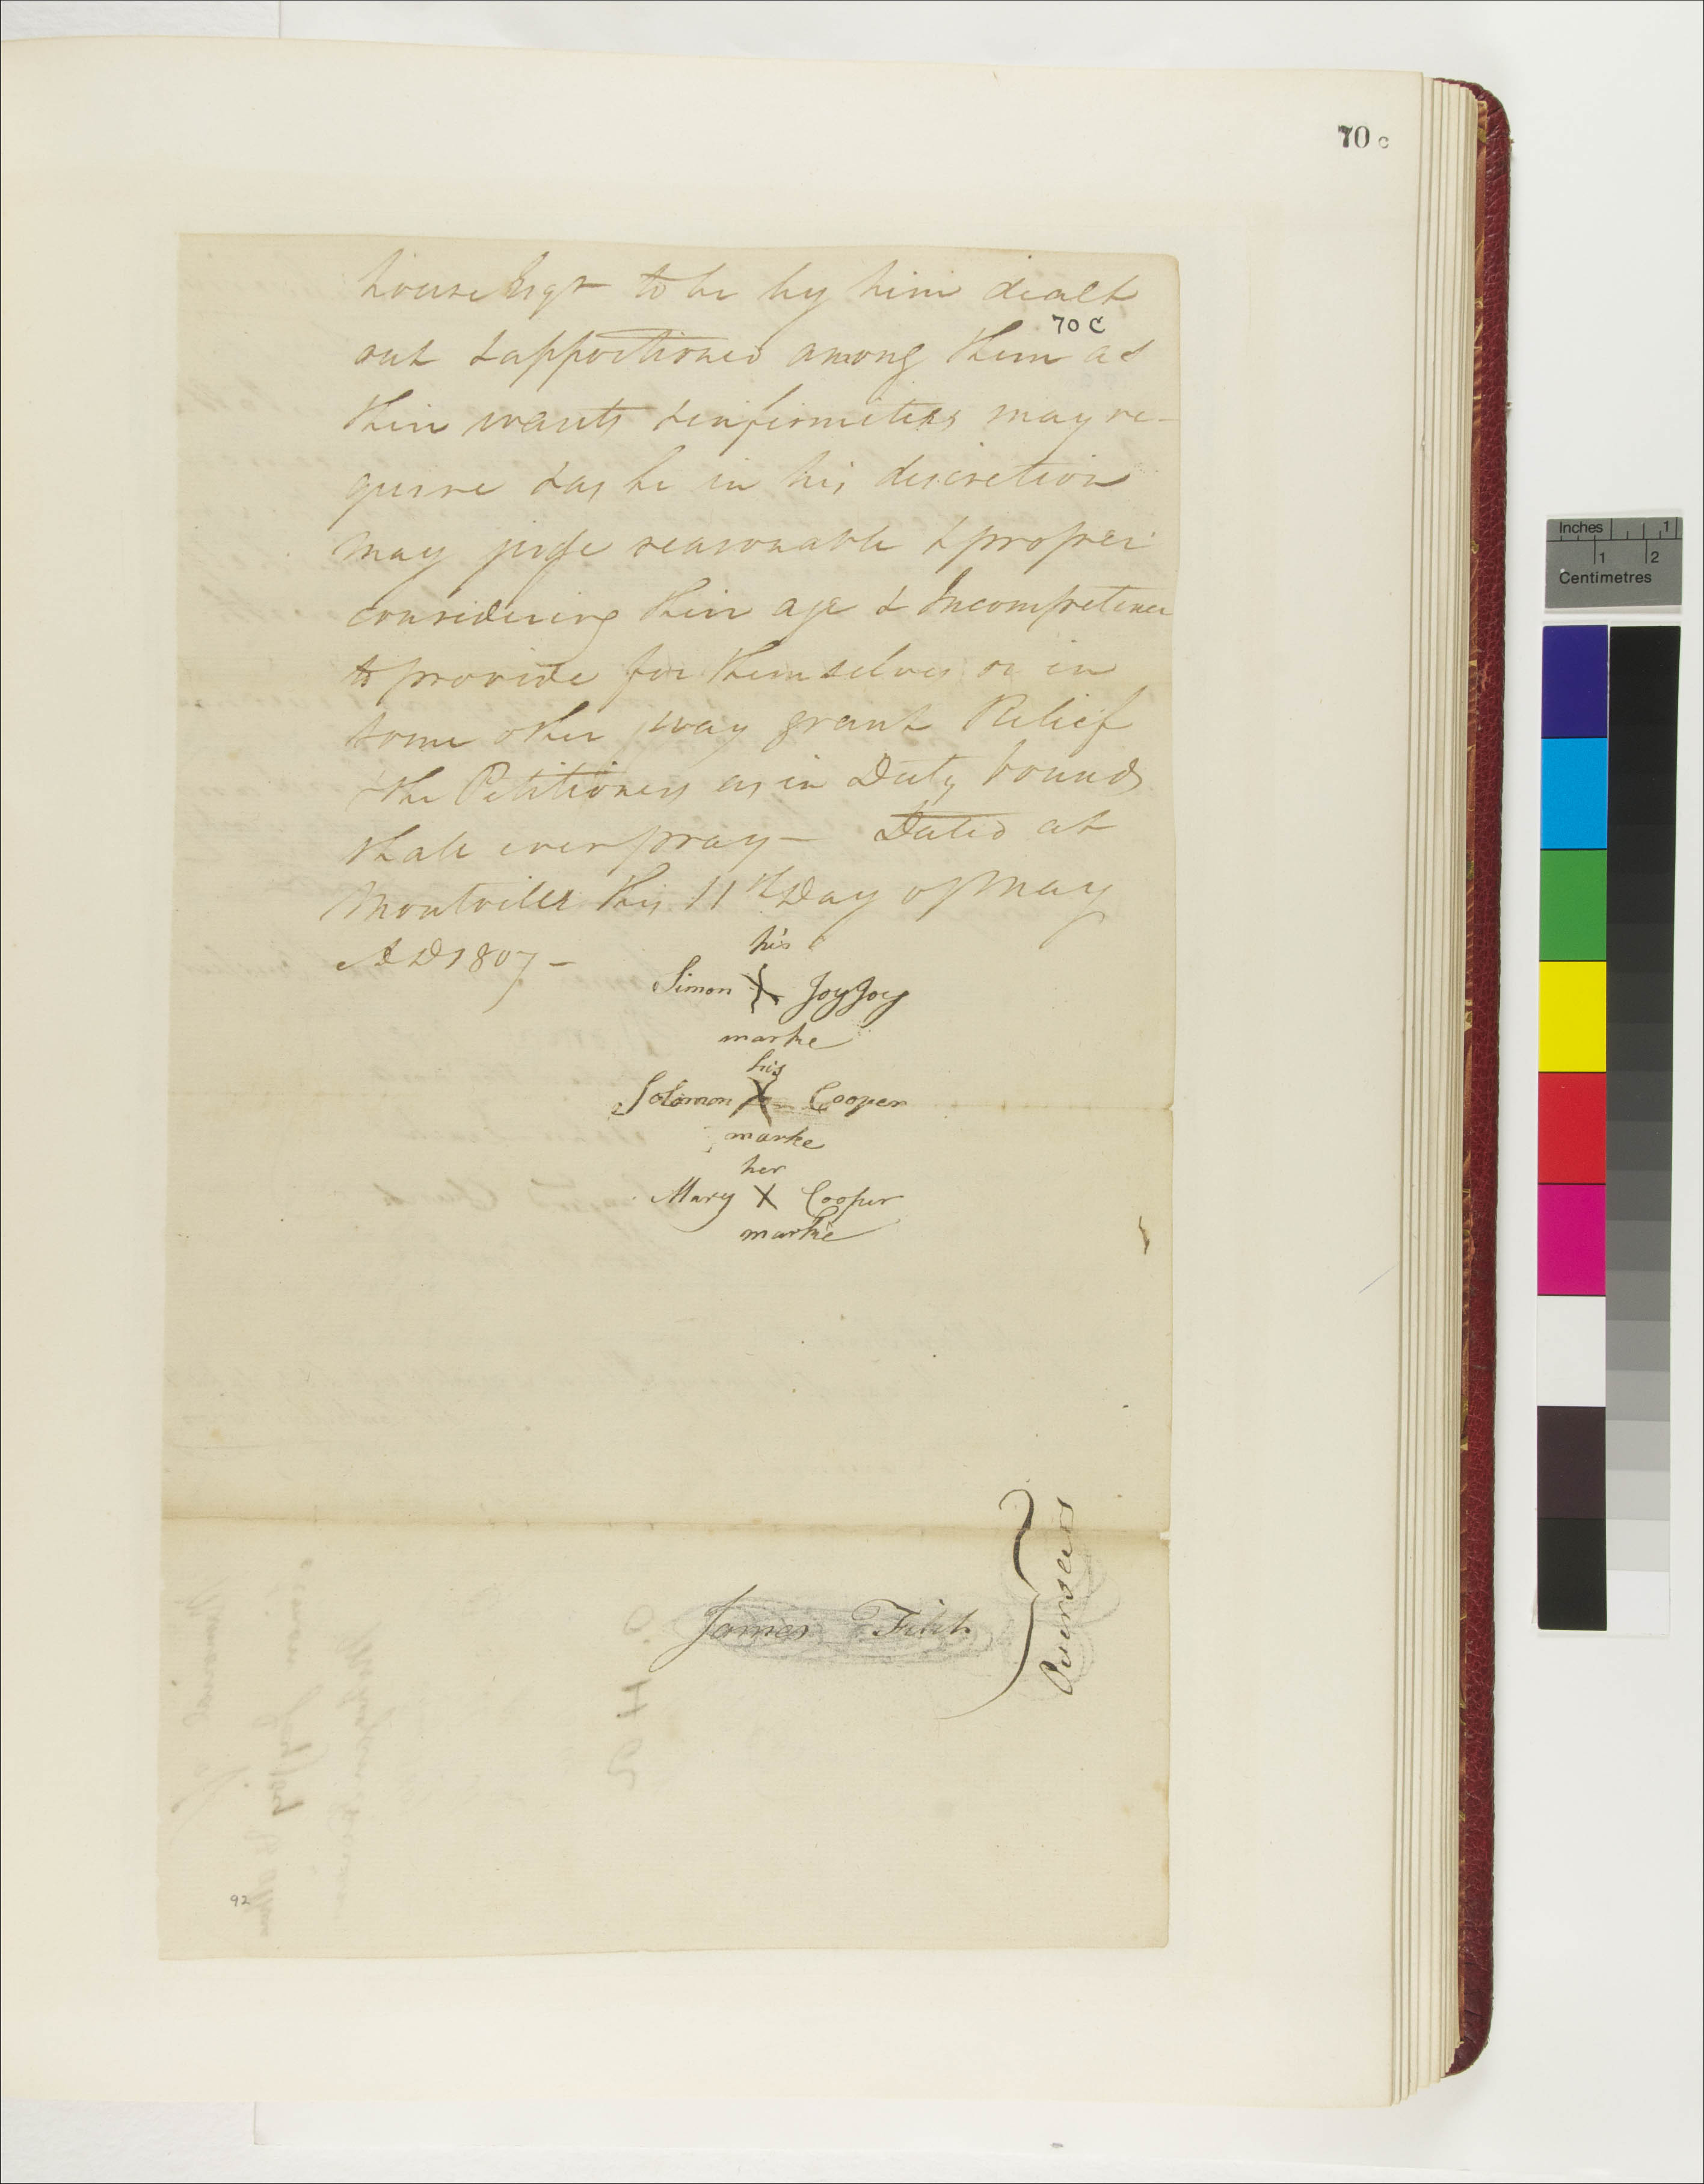 70 c
house Esqr to be by him dealt
70 C
out & apportioned among them as
their wants & infirmities may re-
quire & as he in his discretion
may judge reasonable & proper
considering their age & Incompetence
to provide for themselves or in
some other way grant Relief
the Petitioners as in Duty bound
shall ever pray— Dated at
Montville this 11th Day of May
AD 1807—
his
Simon X JoyJoy
marke
his
Solomon X Cooper
marke
her
Mary X Cooper
marke
James Fitch
Overseers
92
Inches 1
1 2
Centimetres